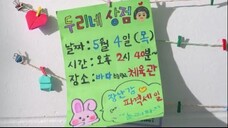 두리네 상점
날짜: 5월 4일 (목)
시간: 오후 2시 40분~
장소: 바다 체육관
장난감
파격세일